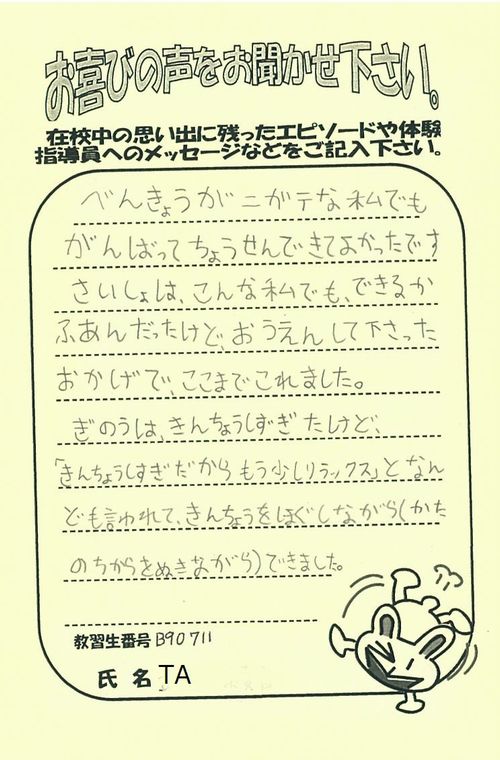 お喜びの声をお聞かせ下さい。
在校中の思い出に残ったエピソードや体験
指導員へのメッセージなどをご記入下さい。
べんきょうがニガテな私でも
がんばってちょうせんできてよかったです
さいしょは、こんな私でも、できるか
ふあんだったけど、おうえんして下さった
おかげで、ここまでこれました。
ぎのうは、きんちょうしすぎたけど、
「きんちょうしすぎだからもう少しリラックス」となん
ども言われて、きんちょうをほぐしながら(かた
のちからをぬきながら)できました。
教習生番号 B90711
氏名 TA